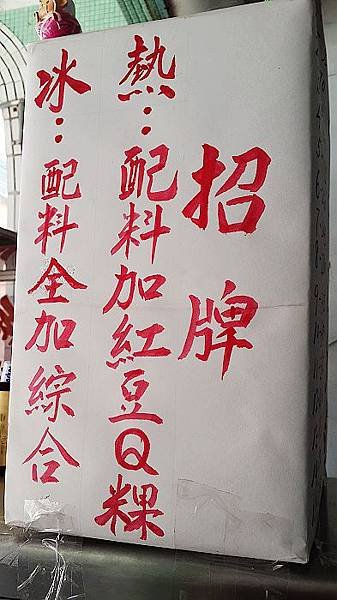 招牌
熱：配料加紅豆Q粿
冰：配料全加綜合